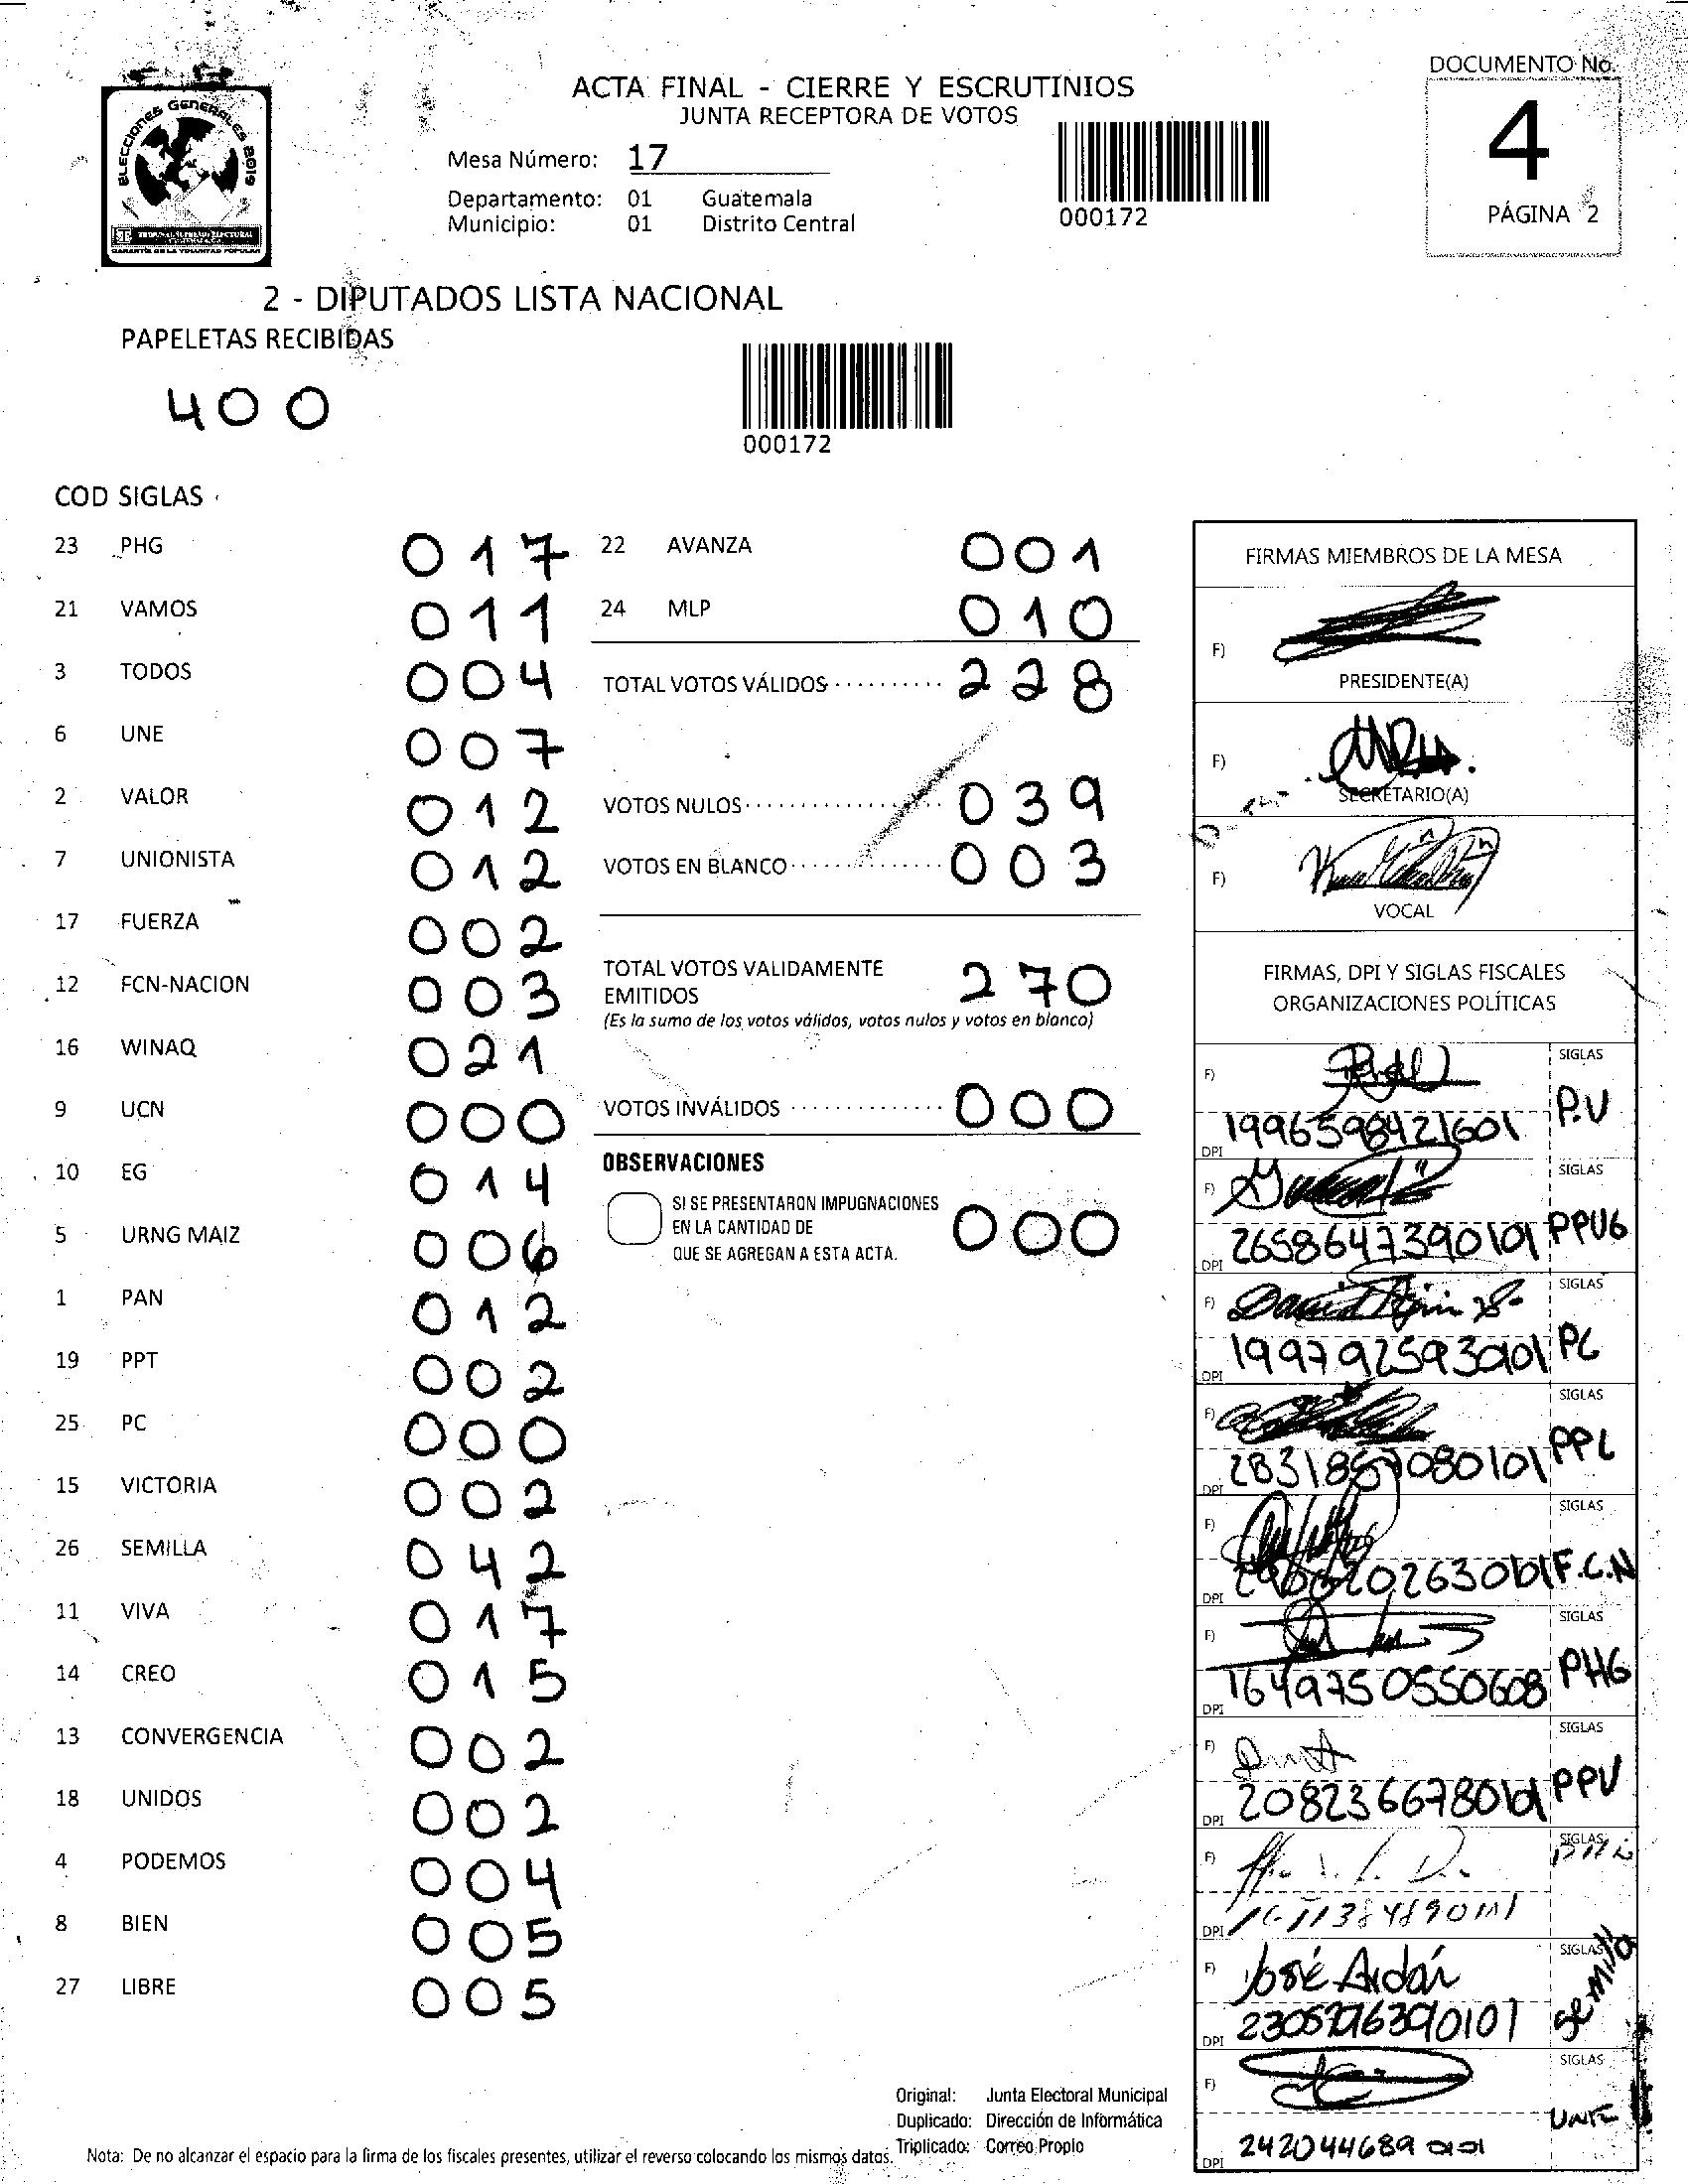 DOCUMENTO No.
4
PÁGINA 2
ELECCIONES GENERALES 2019
TRIBUNAL SUPREMO ELECTORAL
GARANTÍA DE LA VOLUNTAD POPULAR
ACTA FINAL - CIERRE Y ESCRUTINIOS
JUNTA RECEPTORA DE VOTOS
Mesa Número: 17
Departamento: 01 Guatemala
Municipio: 01 Distrito Central
000172
2 - DIPUTADOS LISTA NACIONAL
PAPELETAS RECIBIDAS
400
000172
COD SIGLAS
23 PHG 017
21 VAMOS 011
3 TODOS 004
6 UNE 007
2 VALOR 012
7 UNIONISTA 012
17 FUERZA 002
12 FCN-NACION 003
16 WINAQ 021
9 UCN 000
10 EG 014
5 URNG MAIZ 006
1 PAN 012
19 PPT 002
25 PC 000
15 VICTORIA 002
26 SEMILLA 042
11 VIVA 017
14 CREO 015
13 CONVERGENCIA 002
18 UNIDOS 002
4 PODEMOS 004
8 BIEN 005
27 LIBRE 005
22 AVANZA 001
24 MLP 010
TOTAL VOTOS VÁLIDOS 228
VOTOS NULOS 039
VOTOS EN BLANCO 003
TOTAL VOTOS VALIDAMENTE
EMITIDOS 270
(Es la suma de los votos válidos, votos nulos y votos en blanco)
VOTOS INVÁLIDOS 000
OBSERVACIONES
SI SE PRESENTARON IMPUGNACIONES
EN LA CANTIDAD DE 000
QUE SE AGREGAN A ESTA ACTA.
FIRMAS MIEMBROS DE LA MESA
F)
PRESIDENTE(A)
F)
SECRETARIO(A)
F)
VOCAL
FIRMAS, DPI Y SIGLAS FISCALES
ORGANIZACIONES POLÍTICAS
F) SIGLAS
P.U
DPI 1996598421601
F) SIGLAS
DPI 2658647390101 PPUG
F) SIGLAS
DPI 1997925930101 PC
F) SIGLAS
DPI PPL
F) SIGLAS
DPI F.C.N
F) SIGLAS
DPI 1649750550608 PHG
F) SIGLAS
DPI 2082366780101 PPV
F) SIGLAS
DPI
F) José Aidán SIGLAS
DPI Semilla
F) SIGLAS
UNE
DPI 2420446890101
Original: Junta Electoral Municipal
Duplicado: Dirección de Informática
Triplicado: Correo Propio
Nota: De no alcanzar el espacio para la firma de los fiscales presentes, utilizar el reverso colocando los mismos datos.